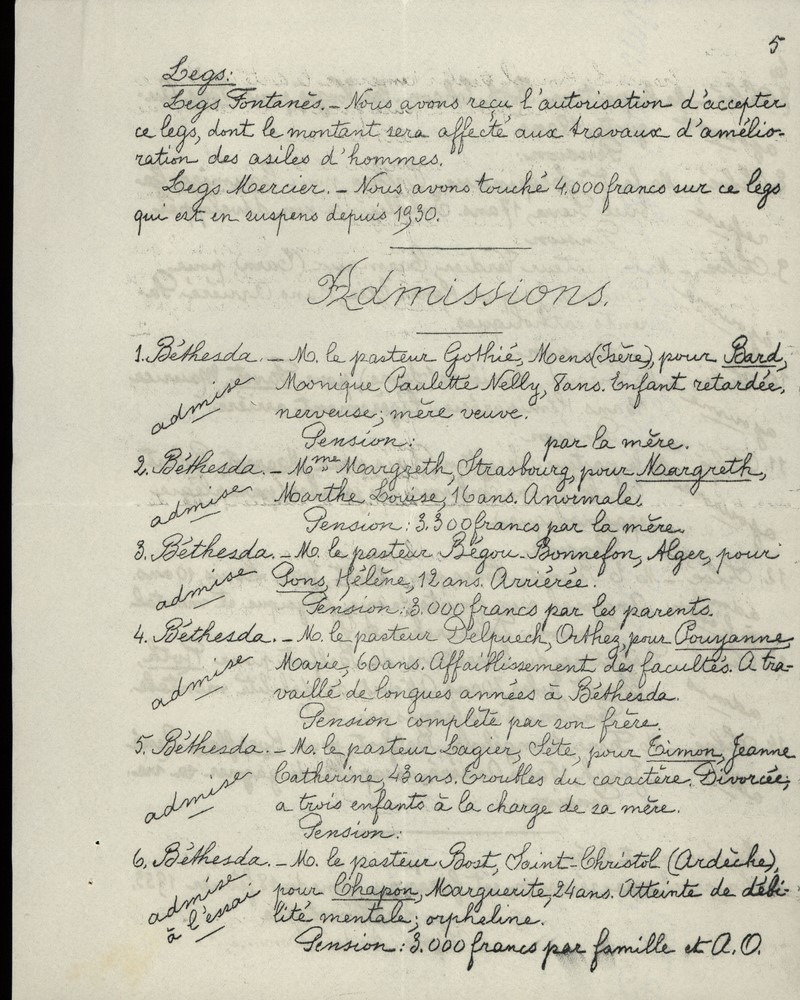 5
Legs:
Legs Fontanès. – Nous avons reçu l'autorisation d'accepter
ce legs, dont le montant sera affecté aux travaux d'amélio-
ration des asiles d'hommes.
Legs Mercier. – Nous avons touché 4.000 francs sur ce legs
qui est en suspens depuis 1930.
Admissions.
1. Béthesda. – M. le pasteur Gothié, Mens (Isère), pour Bard,
admise Monique Paulette Nelly, 8 ans. Enfant retardée,
nerveuse; mère veuve.
Pension: par la mère.
2. Béthesda. – Mme Margreth, Strasbourg, pour Margreth,
admise Marthe Louise, 16 ans. Anormale.
Pension: 3.300 francs par la mère.
3. Béthesda. – M. le pasteur Bégou-Bonnefon, Alger, pour
admise Pons, Hélène, 12 ans. Arriérée.
Pension: 3.000 francs par les parents.
4. Béthesda. – M. le pasteur Delpuech, Orthez, pour Pouyanne
admise Marie, 60 ans. Affaiblissement des facultés. A tra-
vaillé de longues années à Béthesda.
Pension complète par son frère.
5. Béthesda. – M. le pasteur Lagier, Sète, pour Eimon, Jeanne
admise Catherine, 43 ans. Troubles du caractère. Divorcée;
a trois enfants à la charge de sa mère.
Pension:
6. Béthesda. – M. le pasteur Bost, Saint-Christol (Ardèche),
admise pour Chapon, Marguerite, 24 ans. Atteinte de débi-
à l'essai lité mentale; orpheline.
Pension: 3.000 francs par famille et A.O.